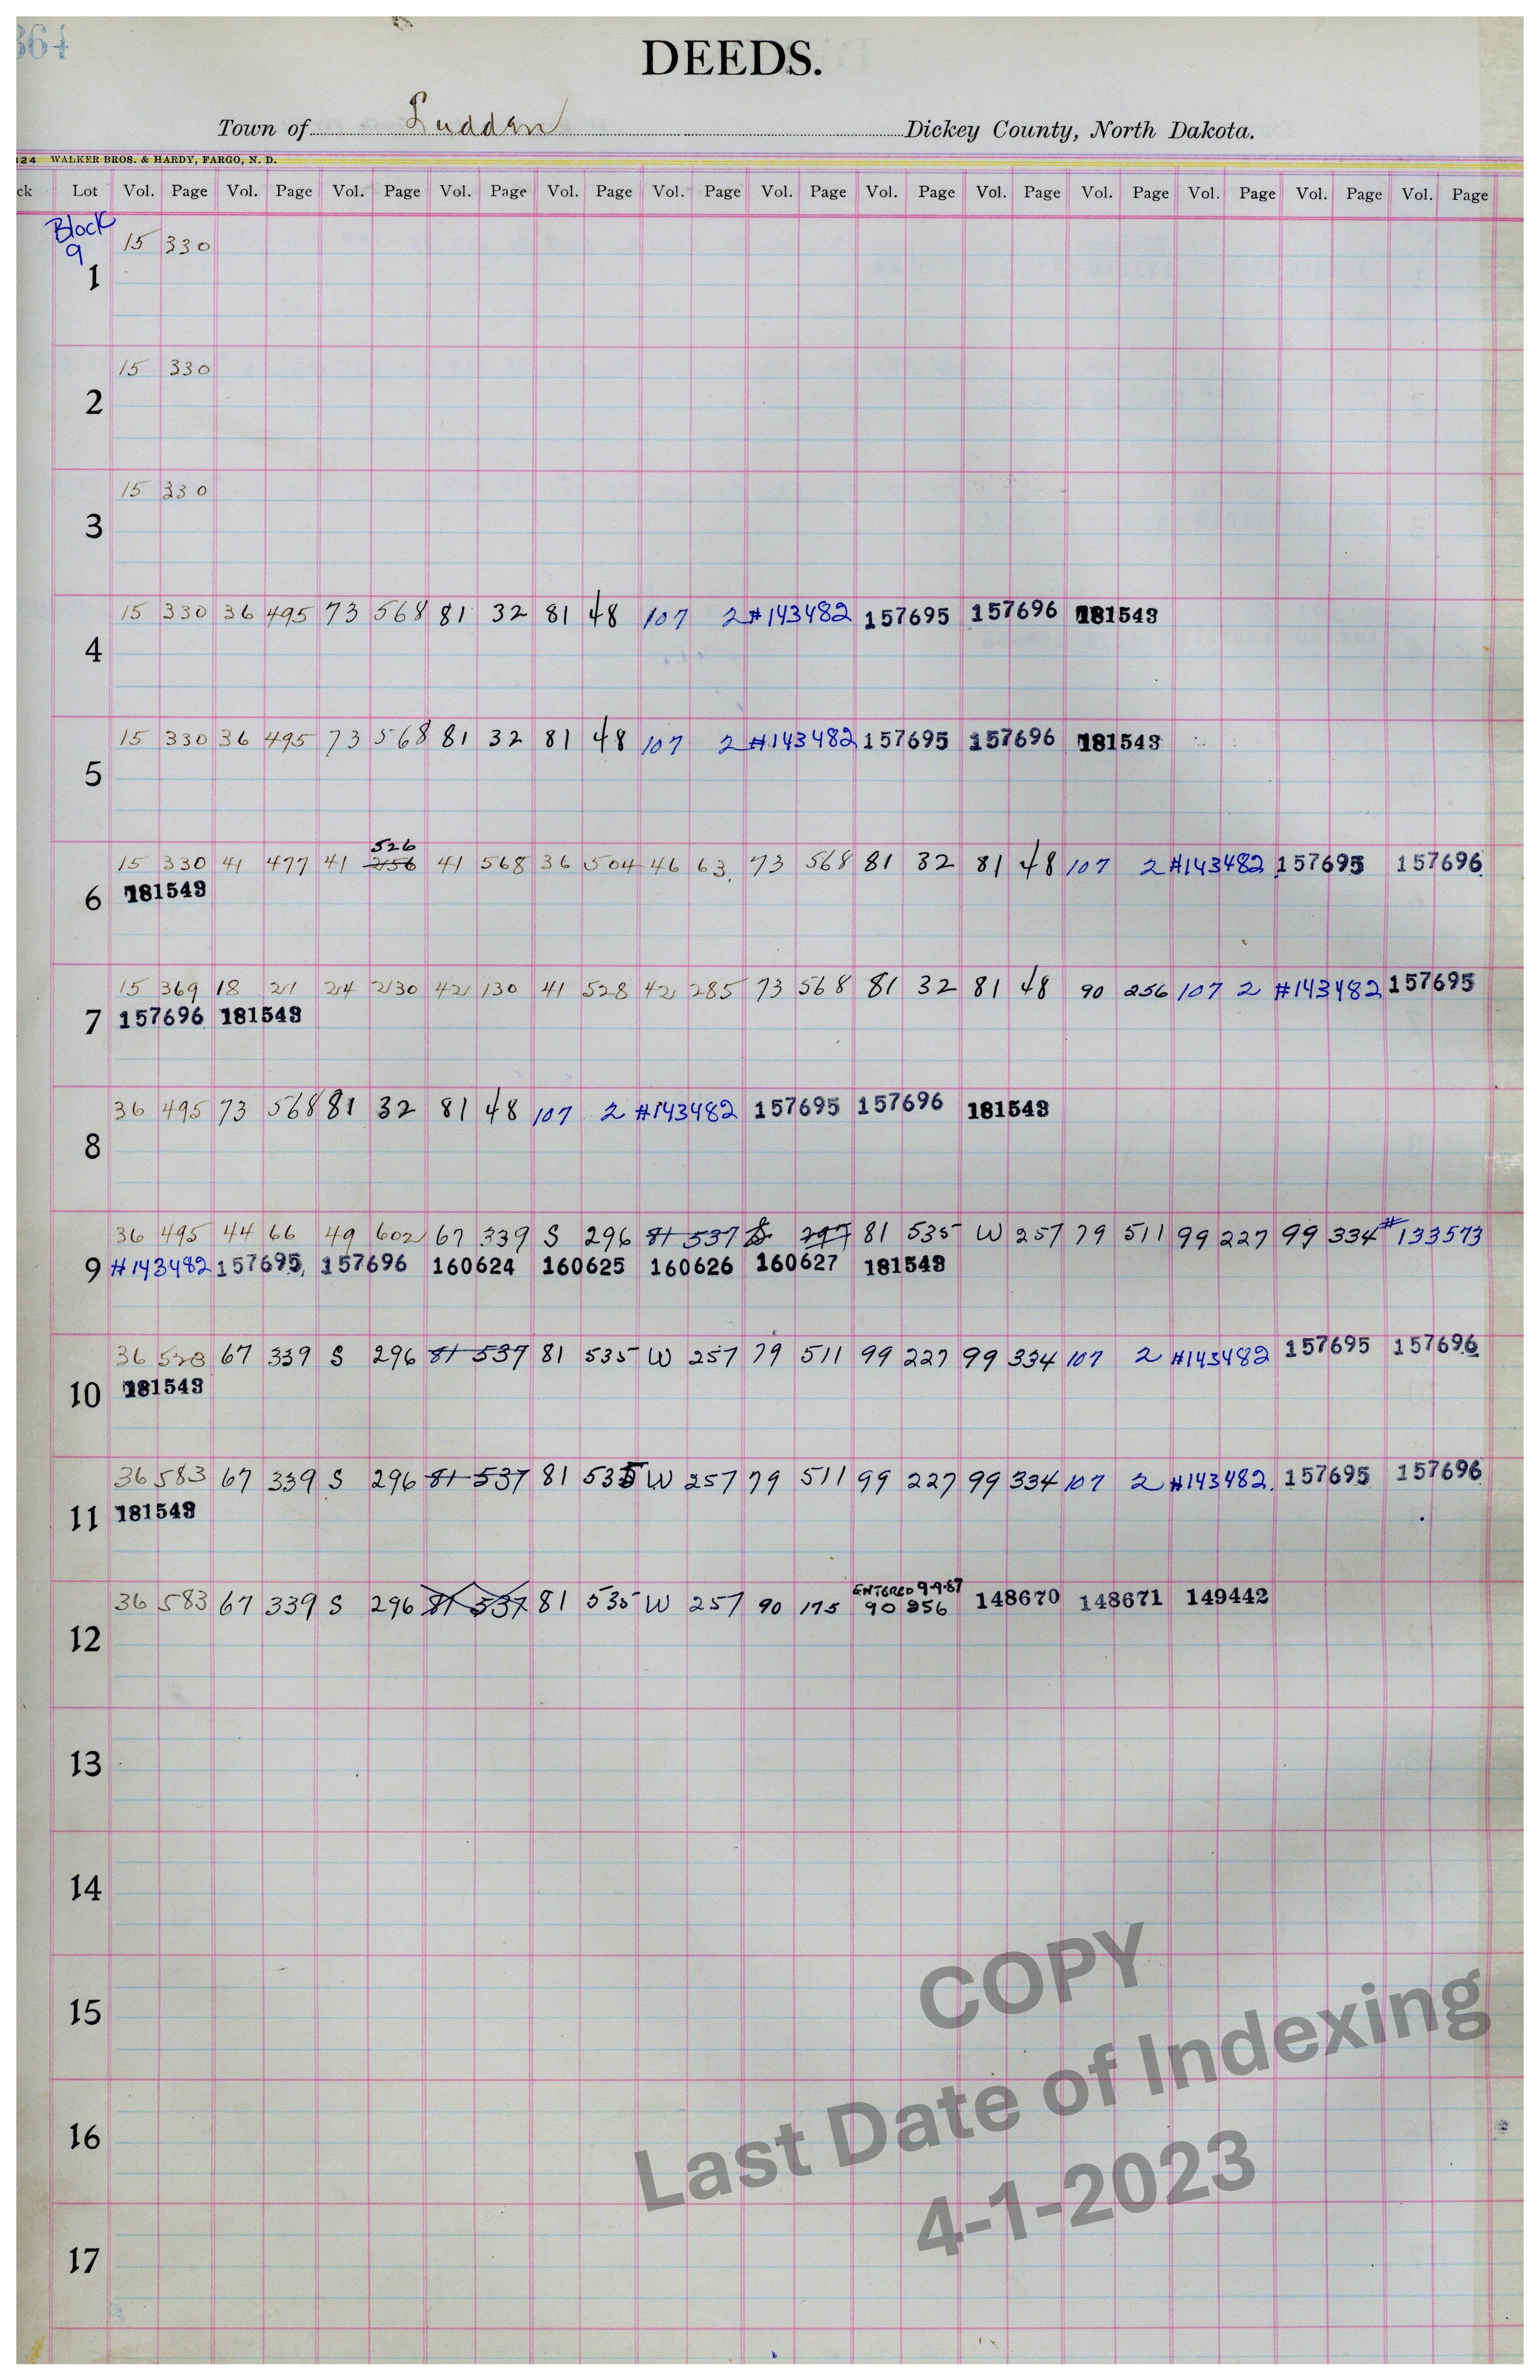 364
DEEDS.
Town of Ludden Dickey County, North Dakota.
124 WALKER BROS. & HARDY, FARGO, N. D.
ck Lot Vol. Page Vol. Page Vol. Page Vol. Page Vol. Page Vol. Page Vol. Page Vol. Page Vol. Page Vol. Page Vol. Page Vol. Page Vol. Page
Block
9
15 330
1
15 330
2
15 330
3
15 330 36 495 73 568 81 32 81 48 107 2 #143482 157695 157696 181543
4
15 330 36 495 73 568 81 32 81 48 107 2 #143482 157695 157696 181543
5
526
15 330 41 477 41 256 41 568 36 504 46 63 73 568 81 32 81 48 107 2 #143482 157695 157696
6 181543
15 369 18 21 24 230 42 130 41 528 42 285 73 568 81 32 81 48 90 256 107 2 #143482 157695
7 157696 181543
36 495 73 568 81 32 81 48 107 2 #143482 157695 157696 181543
8
36 495 44 66 49 602 67 339 S 296 81 537 S 297 81 535 W 257 79 511 99 227 99 334 #133573
9 #143482 157695 157696 160624 160625 160626 160627 181543
36 528 67 339 S 296 81 537 81 535 W 257 79 511 99 227 99 334 107 2 #143482 157695 157696
10 181543
36 583 67 339 S 296 81 537 81 535 W 257 79 511 99 227 99 334 107 2 #143482 157695 157696
11 181543
ENTERED 9-9-87
36 583 67 339 S 296 81 537 81 535 W 257 90 175 90 256 148670 148671 149442
12
13
14
15
16
17
COPY
Last Date of Indexing
4-1-2023